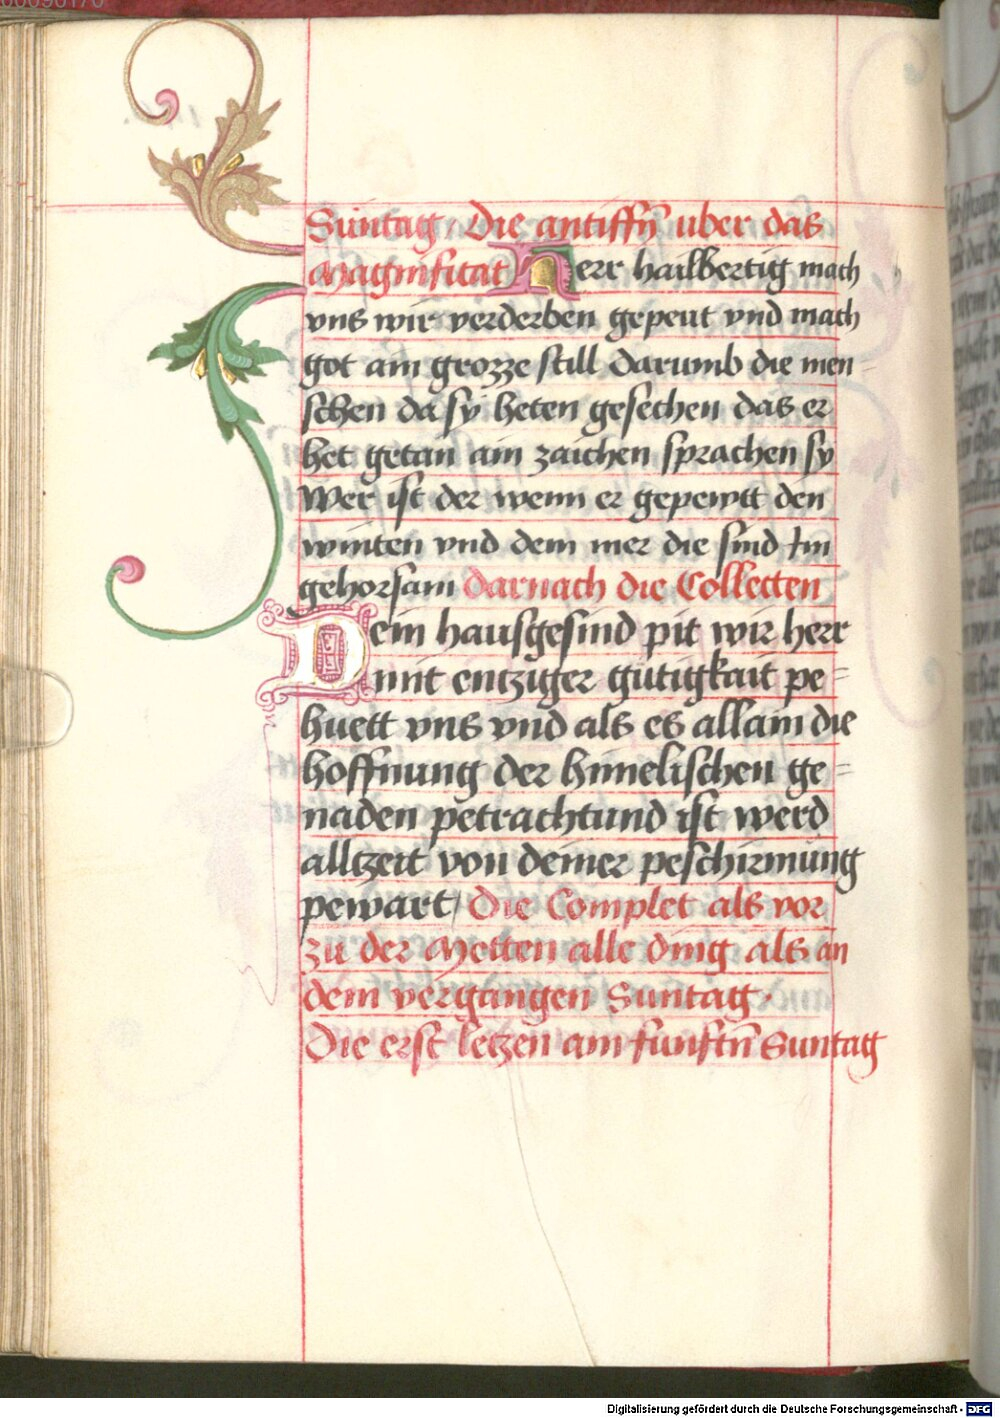 Suntag Die antiffn̄ uber das
Magnificat Herr hailbertig mach
vns wir verderben gepeut vnd mach
got ain grozze still darumb die men
schen da sy heten gesechen das er
het getan ain zaichen sprachen sy
Wer ist der wenn er gepewtt den
winten vnd dem mer die sind Im
gehorsam darnach die Collecten
Dein hausgesind pit wir herr
mit eintziger gütigkait pe=
huett vns vnd als es allain die
hoffnung der himelischen ge=
naden petrachtund ist werd
alltzeit von deiner peschirmung
pewart Die Complet als vor
zu der Metten alle ding als an
dem vergangen Suntag.
Die erst letzen am funftn̄ Suntag
Digitalisierung gefördert durch die Deutsche Forschungsgemeinschaft - DFG